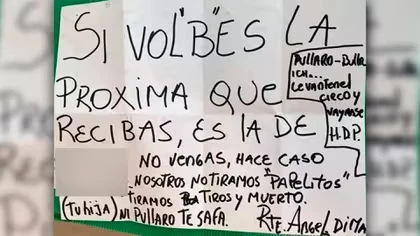 SI VOL"B"ES LA
PROXIMA QUE
RECIBAS, ES LA DE
PULLARO - Bulla
RICH...
LEVANTEN EL
CIRCO Y
VAYANSE
H.D.P.
NO VENGAS, HACE CASO
NOSOTROS NO TIRAMOS "PAPELITOS"
TIRAMOS TIROS Y MUERTO.
(Tu hija) NI PULLARO TE SAFA. Rte. ANGEL DIMA